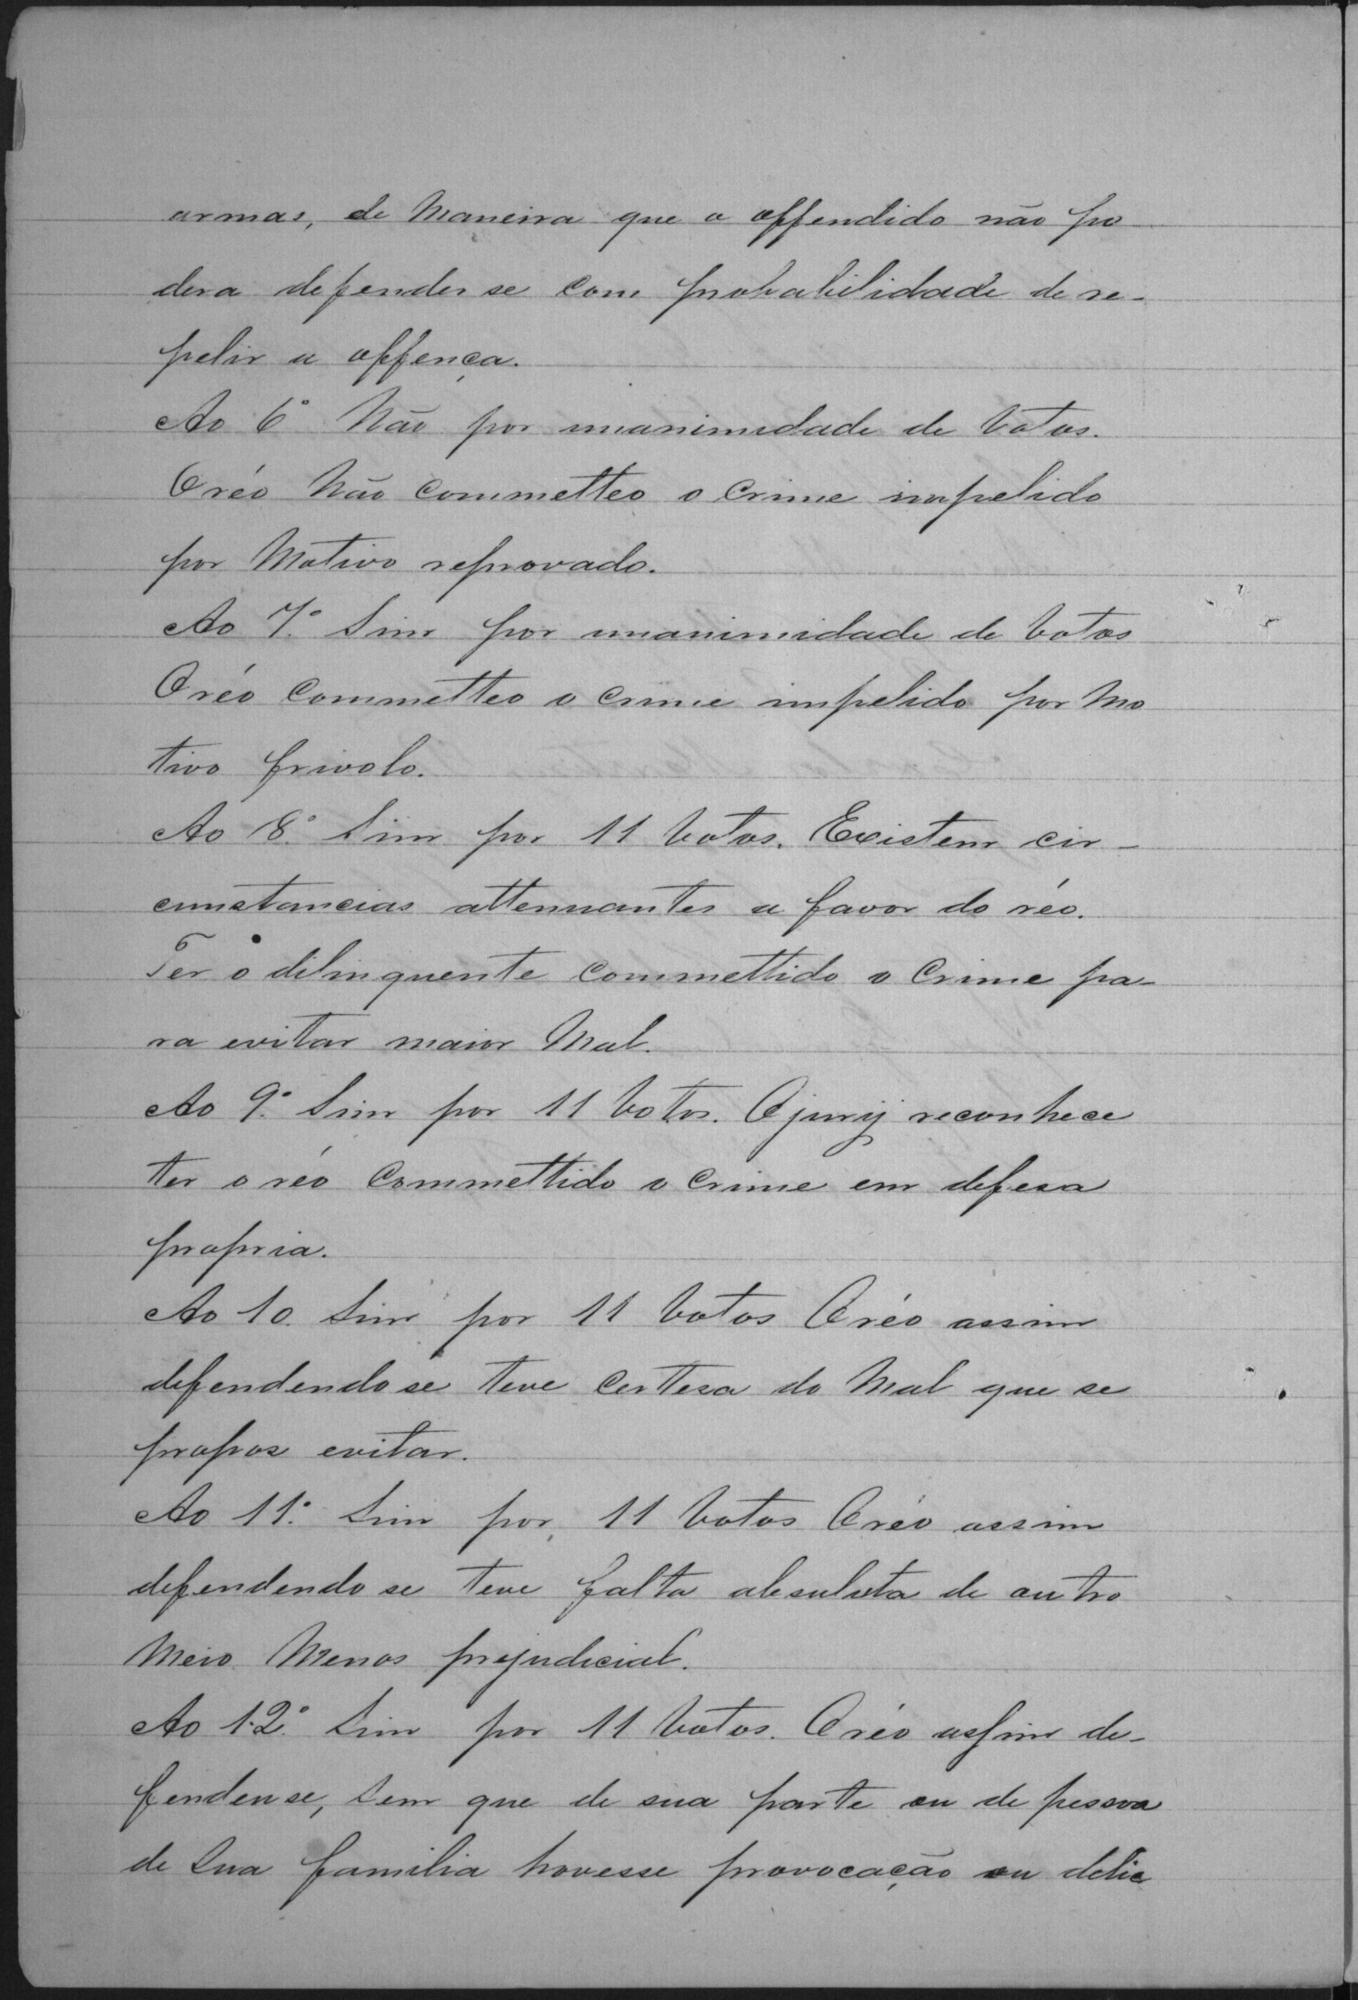 armas, de Maneira que o offendido não po
dera defender se com probabilidade de re-
pelir a offença.
Ao 6º Não por unanimidade de Votos.
O réo Não commetteo o crime impelido
por Motivo reprovado.
Ao 7º. Sim por unanimidade de Votos
O réo commetteo o crime impelido por Mo
tivo frivolo.
Ao 8º. Sim por 11 Votos. Existem cir-
cunstancias attenuantes a favor do réo.
Ter o dilinquente commettido o crime pa-
ra evitar maior Mal.
Ao 9º. Sim por 11 Votos. O jury reconhece
ter o réo commettido o crime em defesa
propria.
Ao 10 Sim por 11 Votos O réo assim
defendendo se teve certesa do Mal que se
propos evitar.
Ao 11º. Sim por 11 Votos O réo assim
defendendo se teve falta absuluta de outro
Meio Menos prejudicial.
Ao 12º. Sim por 11 Votos. O réo assim de-
fendense, sem que de sua parte ou de pessoa
de sua familia hovesse provocação ou delic